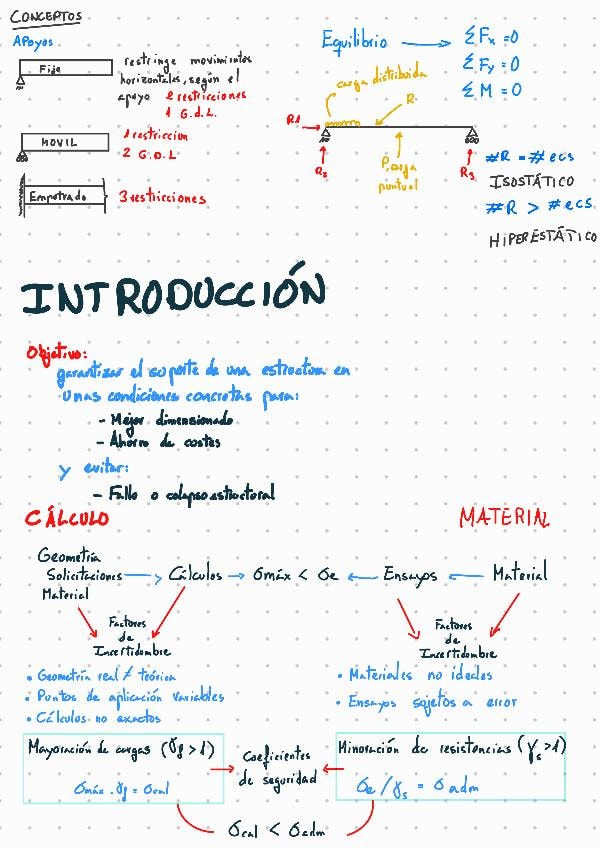 CONCEPTOS
Apoyos
Fijo
restringe movimientos
horizontales, según el
apoyo 2 restricciones
1 G.d.L.
MOVIL
1 restriccion
2 G.D.L
Empotrado
3 restricciones
Equilibrio
ΣFx = 0
ΣFy = 0
ΣM = 0
carga distribuida
R
R1
R2
P, carga
puntual
R3
#R = #ecs
ISOSTÁTICO
#R > #ecs
HIPERESTÁTICO
INTRODUCCIÓN
Objetivo:
garantizar el soporte de una estructura en
unas condiciones concretas para:
- Mejor dimensionado
- Ahorro de costes
y evitar:
- Fallo o colapso estructural
CÁLCULO
MATERIAL
Geometría
Solicitaciones
Material
→ Cálculos → σmáx < σe ← Ensayos ← Material
Factores
de
Incertidumbre
• Geometría real ≠ teórica
• Puntos de aplicación variables
• Cálculos no exactos
Factores
de
Incertidumbre
• Materiales no ideales
• Ensayos sujetos a error
Mayoración de cargas (γg > 1)
σmáx . γg = σcal
Coeficientes
de seguridad
Minoración de resistencias (γs > 1)
σe / γs = σadm
σcal < σadm